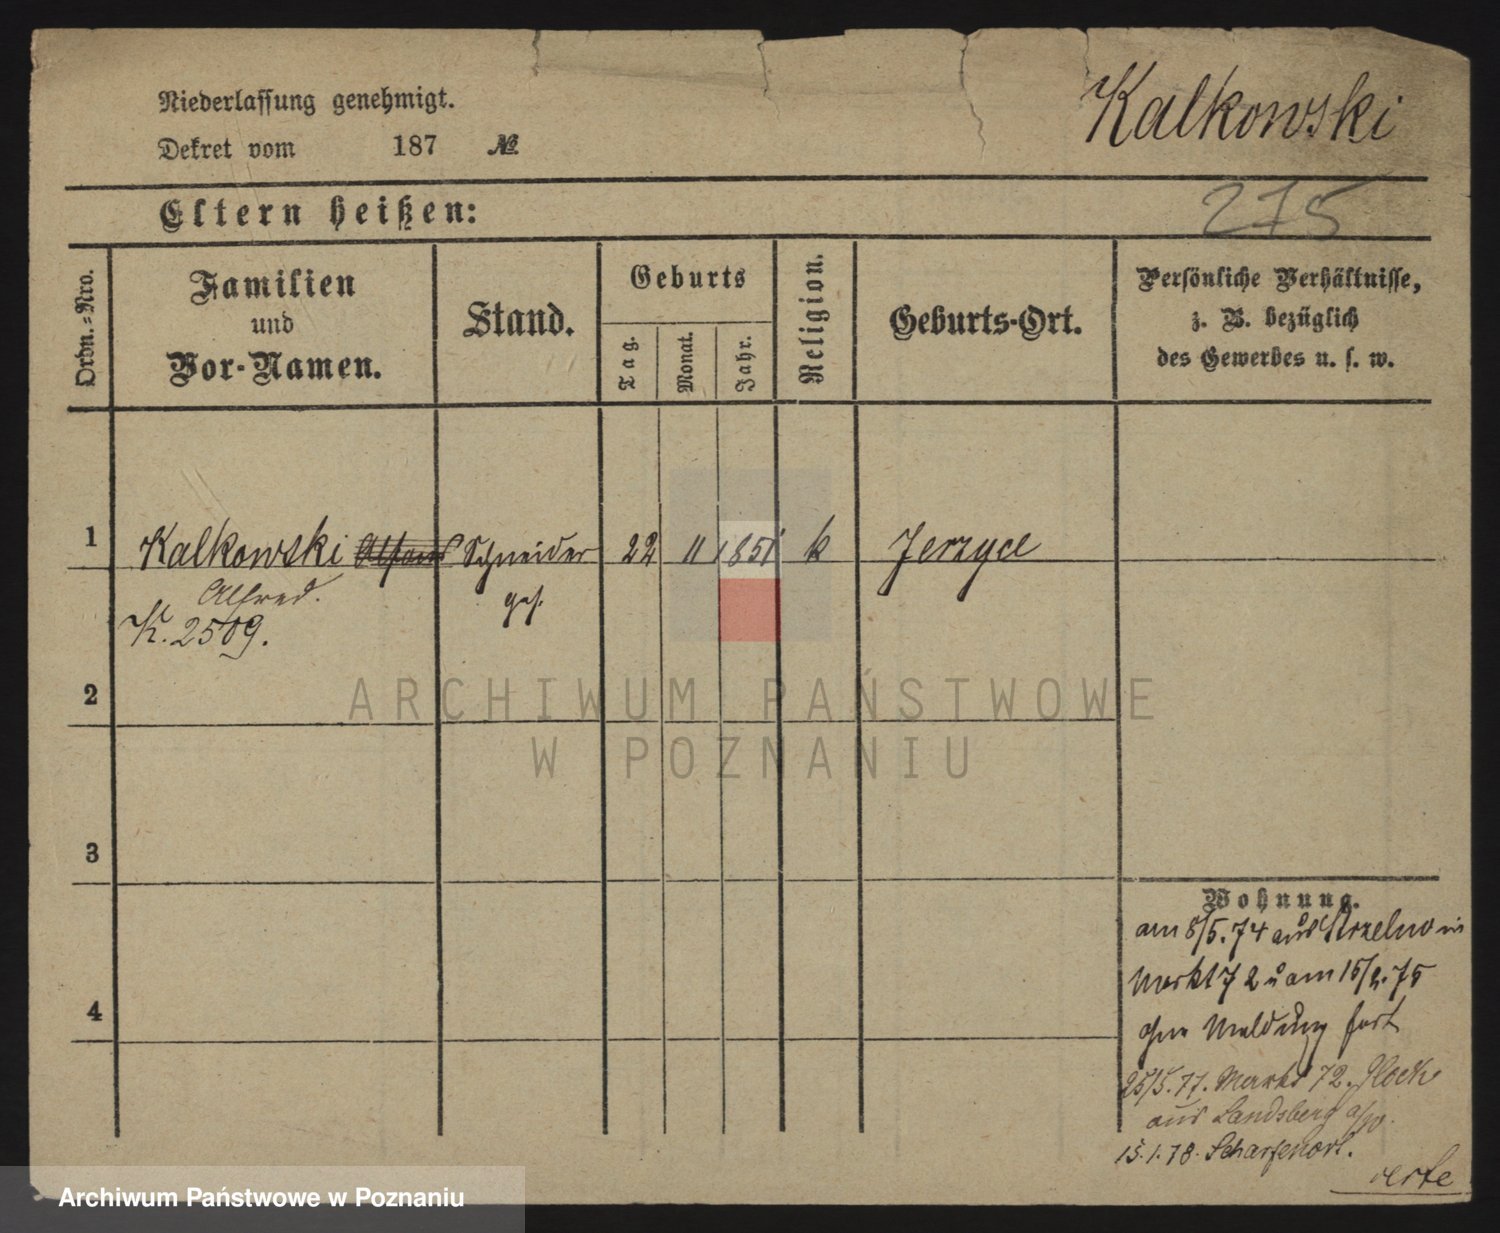 Niederlassung genehmigt.
Dekret vom 187 №
Kalkowski
Eltern heißen:
275
Ordn.-Nro.
Familien
und
Vor-Namen.
Stand.
Geburts
Tag.
Monat.
Jahr.
Religion.
Geburts-Ort.
Persönliche Verhältnisse,
z. B. bezüglich
des Gewerbes u. s. w.
1 Kalkowski Schneider 22 11 1851 k Jerzyce
Alfred. ges.
K. 2509.
2
ARCHIWUM PAŃSTWOWE
W POZNANIU
3
Wohnung.
am 8/5.74 aus Strzelno in
Markt 72 u am 15/2.75
ohne Meldung fort
4
25/5.77. Markt 72. Glock
aus Landsberg a/W.
15.1.78. Scharfenort.
verte
Archiwum Państwowe w Poznaniu